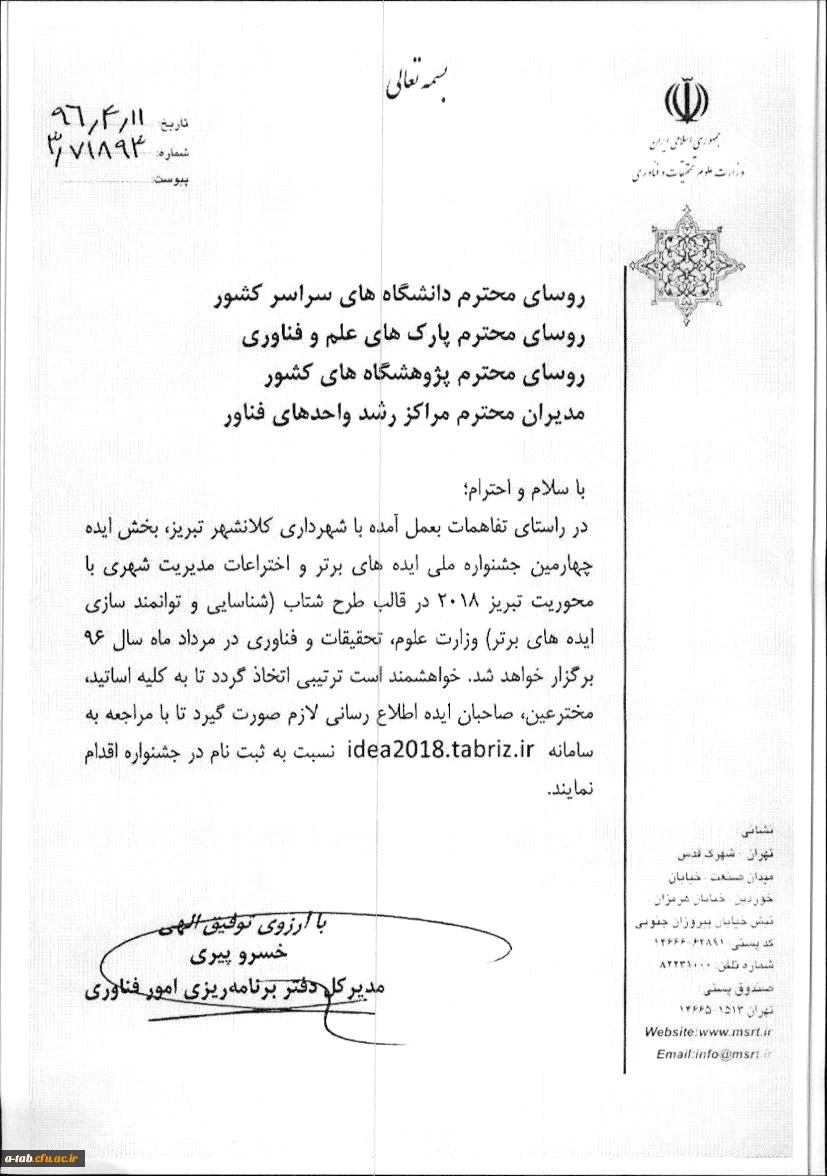 بسمه تعالی
جمهوری اسلامی ایران
وزارت علوم تحقیقات و فناوری
تاریخ: ۹۶٫۴٫۱۱
شماره: ۳٫۷۱۸۹۴
پیوست:
روسای محترم دانشگاه های سراسر کشور
روسای محترم پارک های علم و فناوری
روسای محترم پژوهشگاه های کشور
مدیران محترم مراکز رشد واحدهای فناور
با سلام و احترام؛
در راستای تفاهمات بعمل آمده با شهرداری کلانشهر تبریز، بخش ایده
چهارمین جشنواره ملی ایده های برتر و اختراعات مدیریت شهری با
محوریت تبریز ۲۰۱۸ در قالب طرح شتاب (شناسایی و توانمند سازی
ایده های برتر) وزارت علوم، تحقیقات و فناوری در مرداد ماه سال ۹۶
برگزار خواهد شد. خواهشمند است ترتیبی اتخاذ گردد تا به کلیه اساتید،
مخترعین، صاحبان ایده اطلاع رسانی لازم صورت گیرد تا با مراجعه به
سامانه idea2018.tabriz.ir نسبت به ثبت نام در جشنواره اقدام
نمایند.
با آرزوی توفیق الهی
خسرو پیری
مدیرکل دفتر برنامه‌ریزی امور فناوری
نشانی:
تهران - شهرک قدس
میدان صنعت - خیابان
خوردین - خیابان هرمزان
نبش خیابان پیروزان جنوبی
کد پستی: ۱۴۶۶۶-۶۴۸۹۱
شماره تلفن: ۸۲۲۳۱۰۰۰
صندوق پستی:
تهران ۱۵۱۳-۱۴۶۶۵
Website:www.msrt.ir
Email:info@msrt.ir
a-tab.cfu.ac.ir